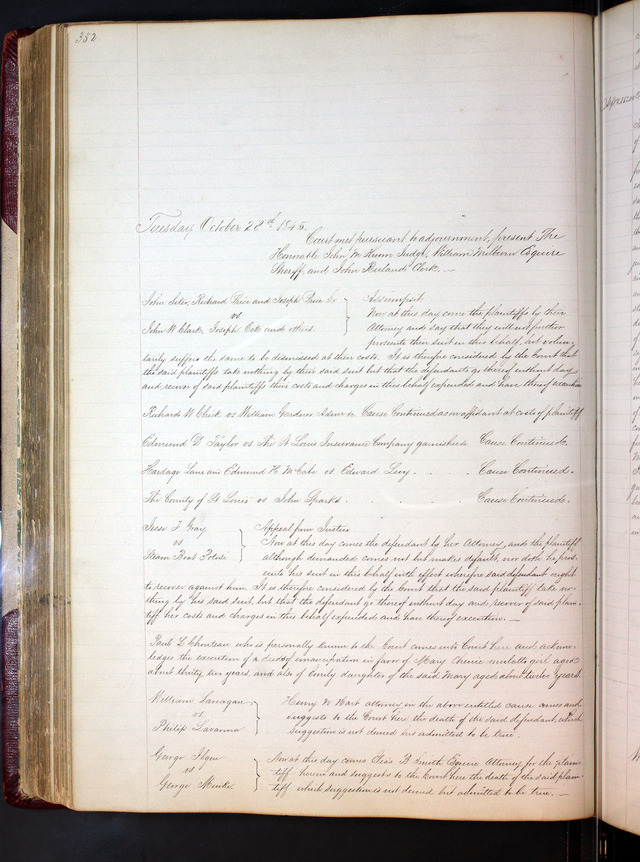 352
Tuesday October 28th 1845.
Court met pursuant to adjournment, present The
Honorable John M Krum Judge, William Milburn Esquire
Sheriff, and John Ruland Clerk. —
John Siler, Richard Price and Joseph Price Sr } Assumpsit.
vs Now at this day come the plaintiffs by their
John W Clark, Joseph and others. Attorney and say that they will not further
prosecute their suit in this behalf, but volun-
tarily suffers the same to be dismissed at their costs. It is therefore considered by the Court that
the said plaintiffs take nothing by their said suit but that the defendants go thereof without day
and recover of said plaintiffs their costs and charges in this behalf expended and have thereof execution
Richards W vs William Gardner Admr &c. Cause Continued as on affidavit at costs of plaintiff
Edmund D Taylor vs The St Louis Insurance Company garnishees Cause Continued.
Hardage Lane and Edmund H McCabe vs Edward Levy . . . . Cause Continued.
The County of St Louis vs John Sparks . . . . Cause Continued.
Jesse F Gray } Appeal from Justice
vs Now at this day comes the defendant by her Attorney, and the plaintiff
Steam Boat Potosi although demanded comes not but makes default, nor doth he pros-
ecute his suit in this behalf with effect wherefore said defendant ought
to recover against him. It is therefore considered by the Court that the said plaintiff take no-
thing by his said suit, but that the defendant go thereof without day and recover of said plain-
tiff her costs and charges in this behalf expended and have thereof execution. —
Paul L Chouteau who is personally known to the Court comes into Court here and acknow-
ledges the execution of a deed of emancipation in favor of Mary mulatto girl aged
about thirty two years, and also of Emily daughter of the said Mary aged about twelve years
William Lanagan } Henry W Hart attorney in the above entitled cause comes and
vs suggests to the Court here the death of the said defendant, which
Philip Lavanna suggestion is not denied but admitted to be true.
George Ilgen } Now at this day comes B Smith Esquire Attorney for the plain-
vs tiff herein and suggests to the Court here the death of the said plain-
George Menke tiff which suggestion is not denied but admitted to be true. —